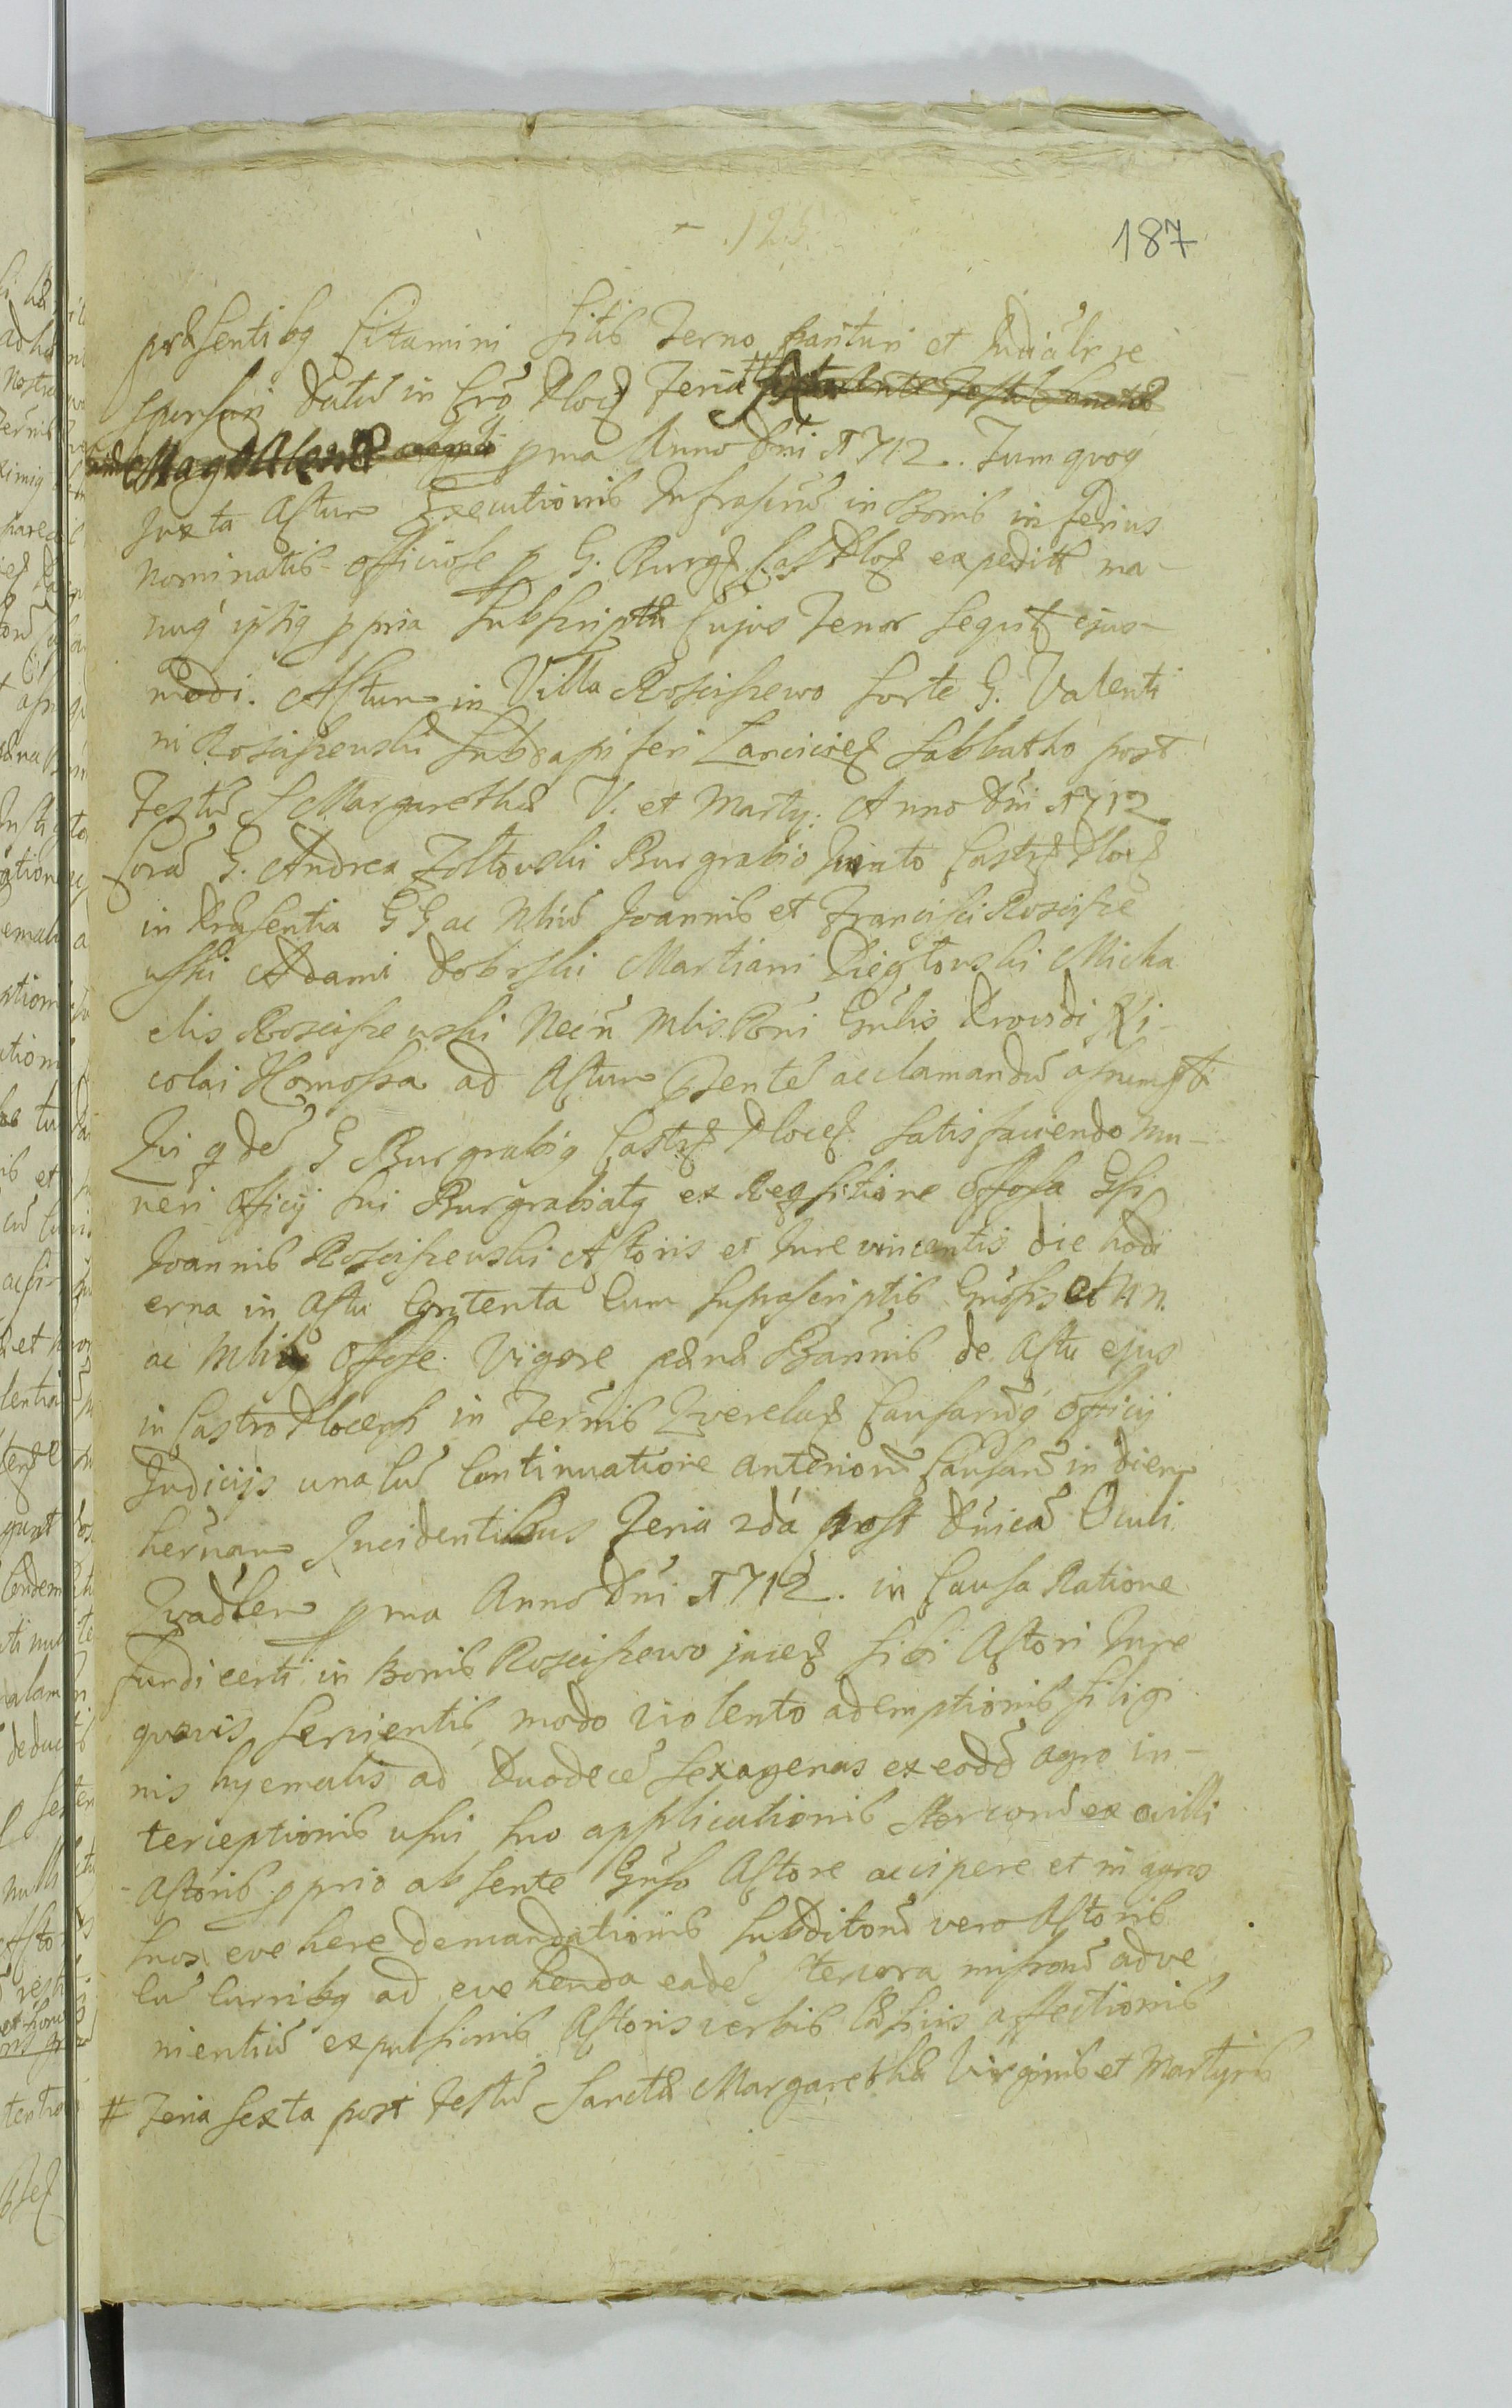 187
præsentibq Citamini sitis Terno parituri et Judicialr re
spursuri Datũ in Crõ Ploc Feria # Sexta ante Festũ Sanctæ
Magdalenæ pma Anno Dni 1712. Tum quoq
Juxta Actum Executionis Infrascrũ in Bonis inferius
nominatis officiose p G. Burg Cas Ploc expeditæ ma-
nuq ipsiq ppria subscriptæ Cujus Tenor sequit ejus-
modi. Actum in Villa Rosciszewo sorte G. Valenti
ni Rosciszewski Subdapiferi Lancicień Sabbatho post
Festũ S Margarethæ V. et Marty: Anno Dni 1712
Corã G. Andrea Zołtowski Burgrabio Jurato Castr Ploc
in Præsentia GG ac Nliũ Joannis et Francisci Roscisze
wski Adami Dobrski Martiani Micha
elis Rosciszewski Necñ Mlis Gnlis Providi Ni-
colai Homossa ad Actum Psentẽ acclamandũ assumpt
Qui qdẽ G Burgrabiq Castr Ploceń satisfaciendo mu-
neri Officij sui Burgrabiatq ex Reqsitione Offosa Gsi
Joannis Rosciszewski Actoris et Jure vincentis die hodi
erna in Actu Contenta Cum suprascriptis Gnosis et NN.
ac Mlibq Offose Vigore pænæ Bannis de Actu ejus
in Castro Plocen in Ternis Querelar Causarũq Officij
Judicijs una cũ Continuatione anteriorũ Causarũ in diem
hernam Incidentibus Feria 2dá post Dnicã Oculi
Quadlem pma Anno Dni 1712. in Causa Ratione
fundi certi in Bonis Rosciszewo jaceń sibi Actori Jure
quovis servientis, modo violento ademptionis siligi
nis hyemalis ad Duodecẽ sexagenas ex eodẽ agro in-
terceptionis usui suo applicationis stercorũ ex ovili
Actoris pprio absente Gnso Actore accipere et in agros
suos evehere demandationis subditorũ vero Actoris
cũ curribq ad evehenda eadẽ stercora missorũ adve
nientiũ expulsionis Actoris verbis læsivis affectionis
# Feria sexta post Festũ Sanctæ Margarethæ Virginis et Martyris